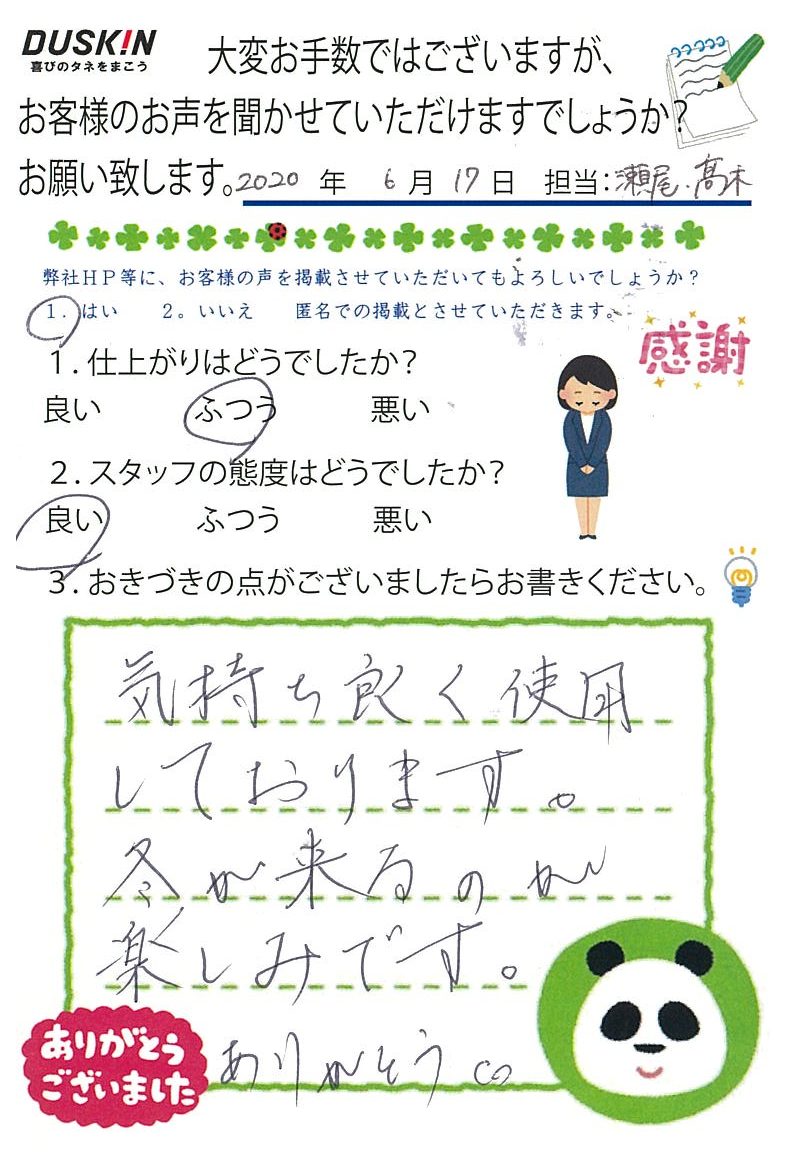 DUSK!N
喜びのタネをまこう
大変お手数ではございますが、
お客様のお声を聞かせていただけますでしょうか?
お願い致します。2020 年 6 月 17 日 担当:瀬尾.髙木
弊社HP等に、お客様の声を掲載させていただいてもよろしいでしょうか?
1. はい 2。いいえ 匿名での掲載とさせていただきます。
感謝
1.仕上がりはどうでしたか?
良い ふつう 悪い
2.スタッフの態度はどうでしたか?
良い ふつう 悪い
3.おきづきの点がございましたらお書きください。
気持ち良く使用
しております。
冬が来るのが
楽しみです。
ありがとう
ございました
ありがとう